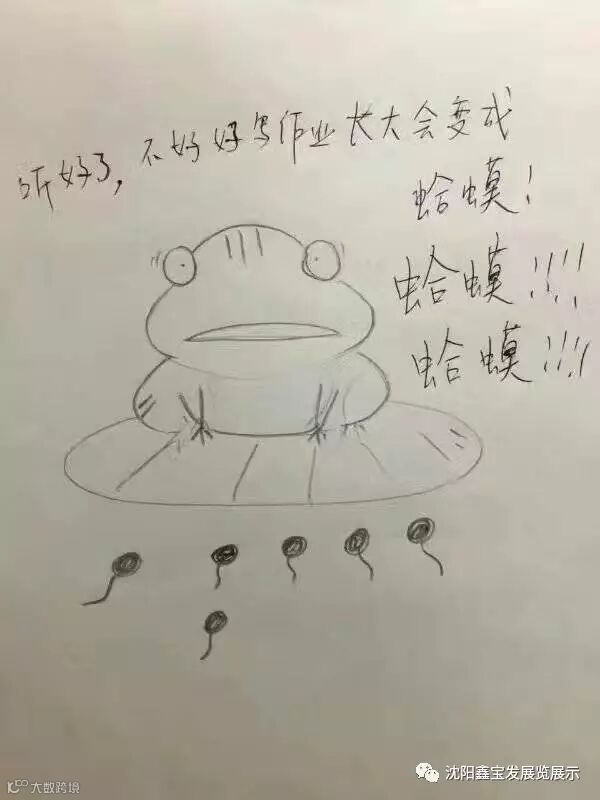 听好了，不好好写作业长大会变成
蛤蟆！
蛤蟆！！！！
蛤蟆！！！！
大数跨境
沈阳鑫宝发展览展示